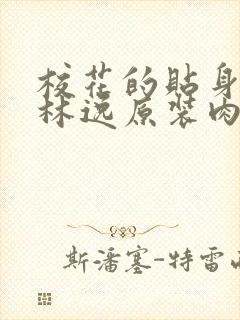 校花的贴身
林逸原装肉
斯潘塞-特雷西